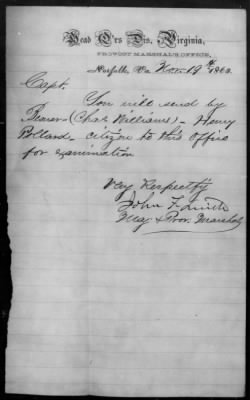 Head Qrs Dis. Virginia,
PROVOST MARSHAL'S OFFICE,
Norfolk, Va. Nov. 19th 1863.
Capt.
You will send by
Bearer (Chas Williams) - Henry
Pollard - citizen to this office
for examination
Very Respectfy
John F Smith
Maj & Prov. Marshal